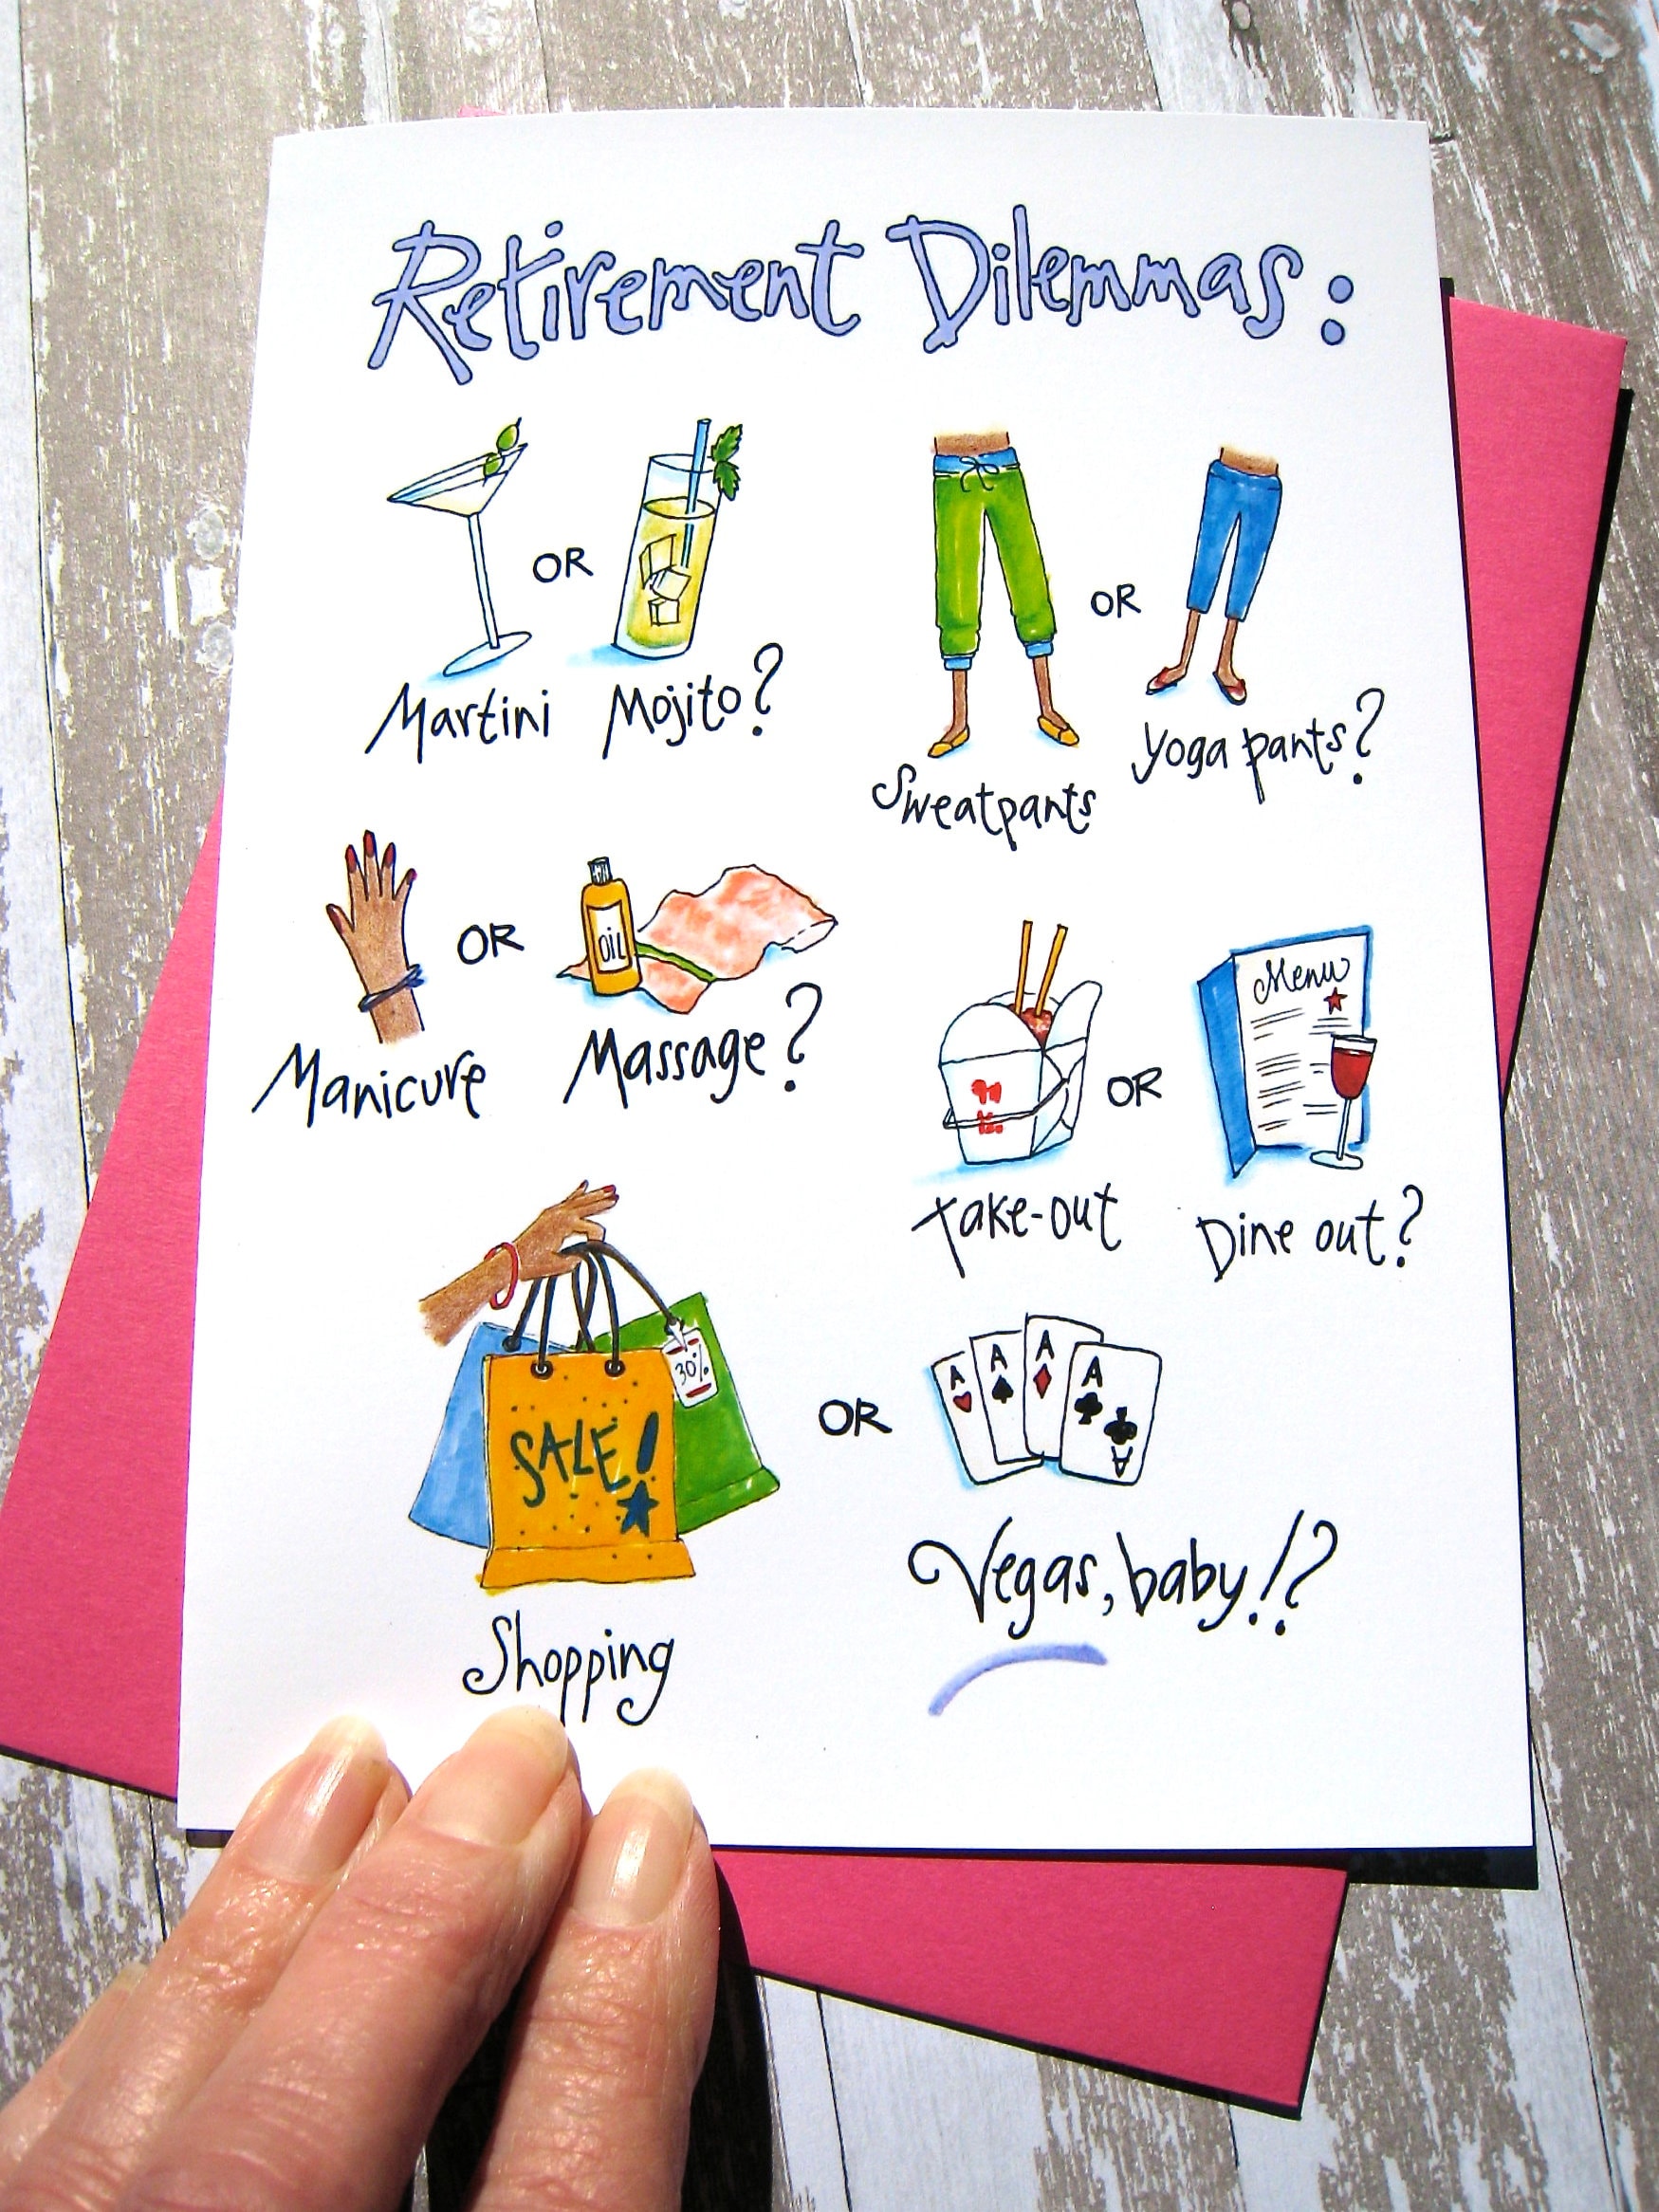 Retirement Dilemmas:
OR
Martini Mojito?
OR
Sweatpants Yoga pants?
OR
OIL
Manicure Massage?
OR
Menu
Take-out Dine out?
30%
SALE!
Shopping
OR
A A A A A
Vegas, baby!?